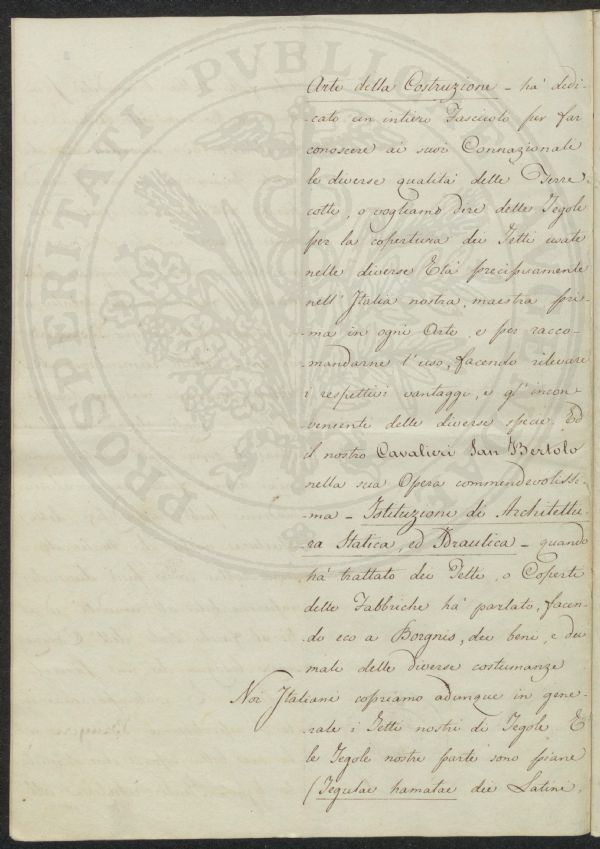 Arte della Costruzione - ha' dedi-
-cato un intiero Fascicolo per far
conoscere ai suoi Connazionali
le diverse qualita' delle Terre
cotte, o vogliamo dire delle Tegole
per la copertura dei Tetti usate
nelle diverse Eta' precipuamente
nell' Italia nostra, maestra pri-
-ma in ogni Arte, e per racco-
-mandarne l'uso, facendo rilevare
i respettivi vantaggi, e gl' incon
venienti delle diverse specie. Ed
il nostro Cavalieri San Bertolo
nella sua Opera commendevolissi-
-ma - Istituzioni di Architettu-
-ra Statica, ed Idraulica - quando
ha' trattato dei Tetti, o Coperti
delle Fabbriche ha' parlato, facen-
-do eco a Borgnis, dei beni, e dei
mali delle diverse costumanze
Noi Italiani copriamo adunque in gene-
-rale i Tetti nostri di Tegole. E
le Tegole nostre parte sono piane
(Tegulae hamatae dei Latini,
PROSPERITATI PVBLICAE